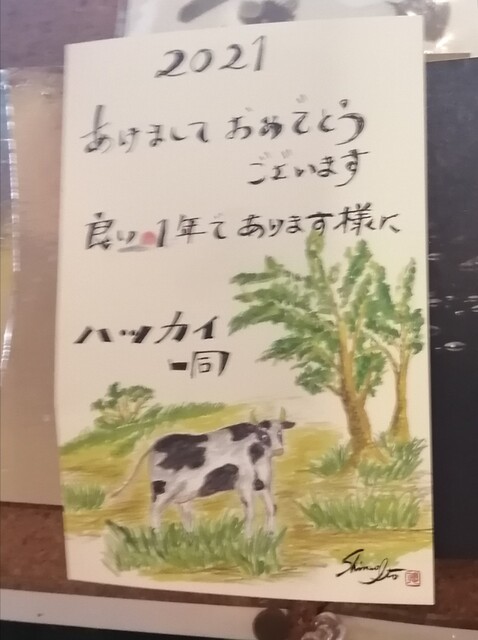 2021
あけまして おめでとう
ございます
良い 1年で あります様に
ハッカイ
一同